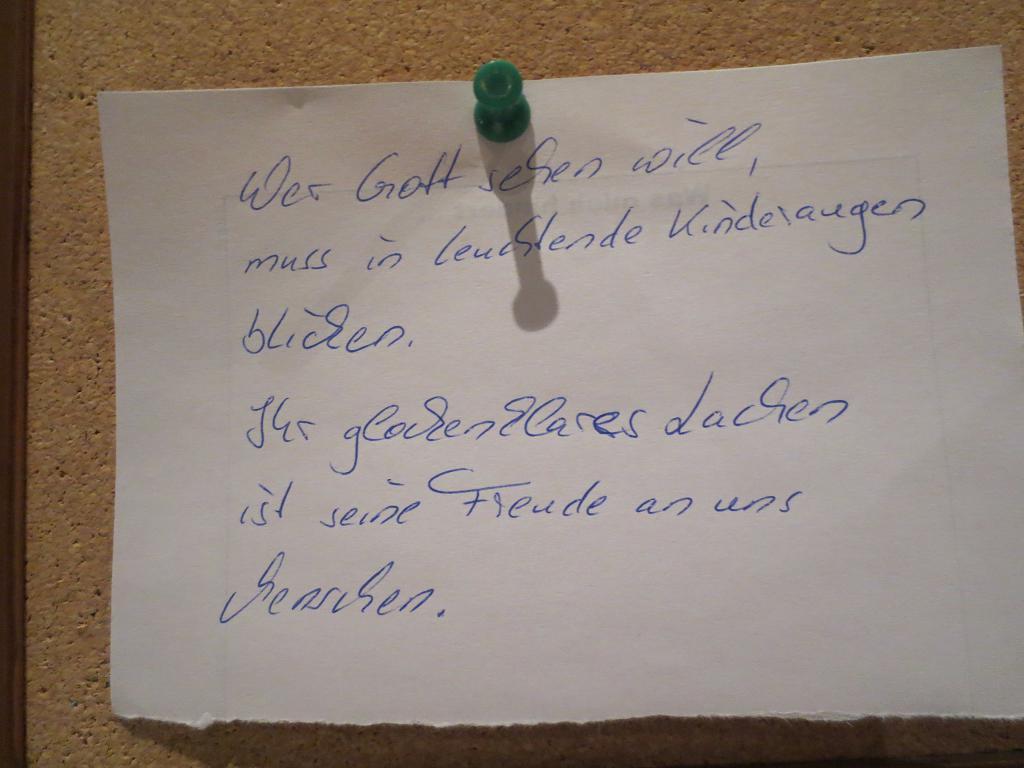 Wer Gott sehen will,
muss in leuchtende Kinderaugen
blicken.
Ihr glockenklares Lachen
ist seine Freude an uns
Menschen.